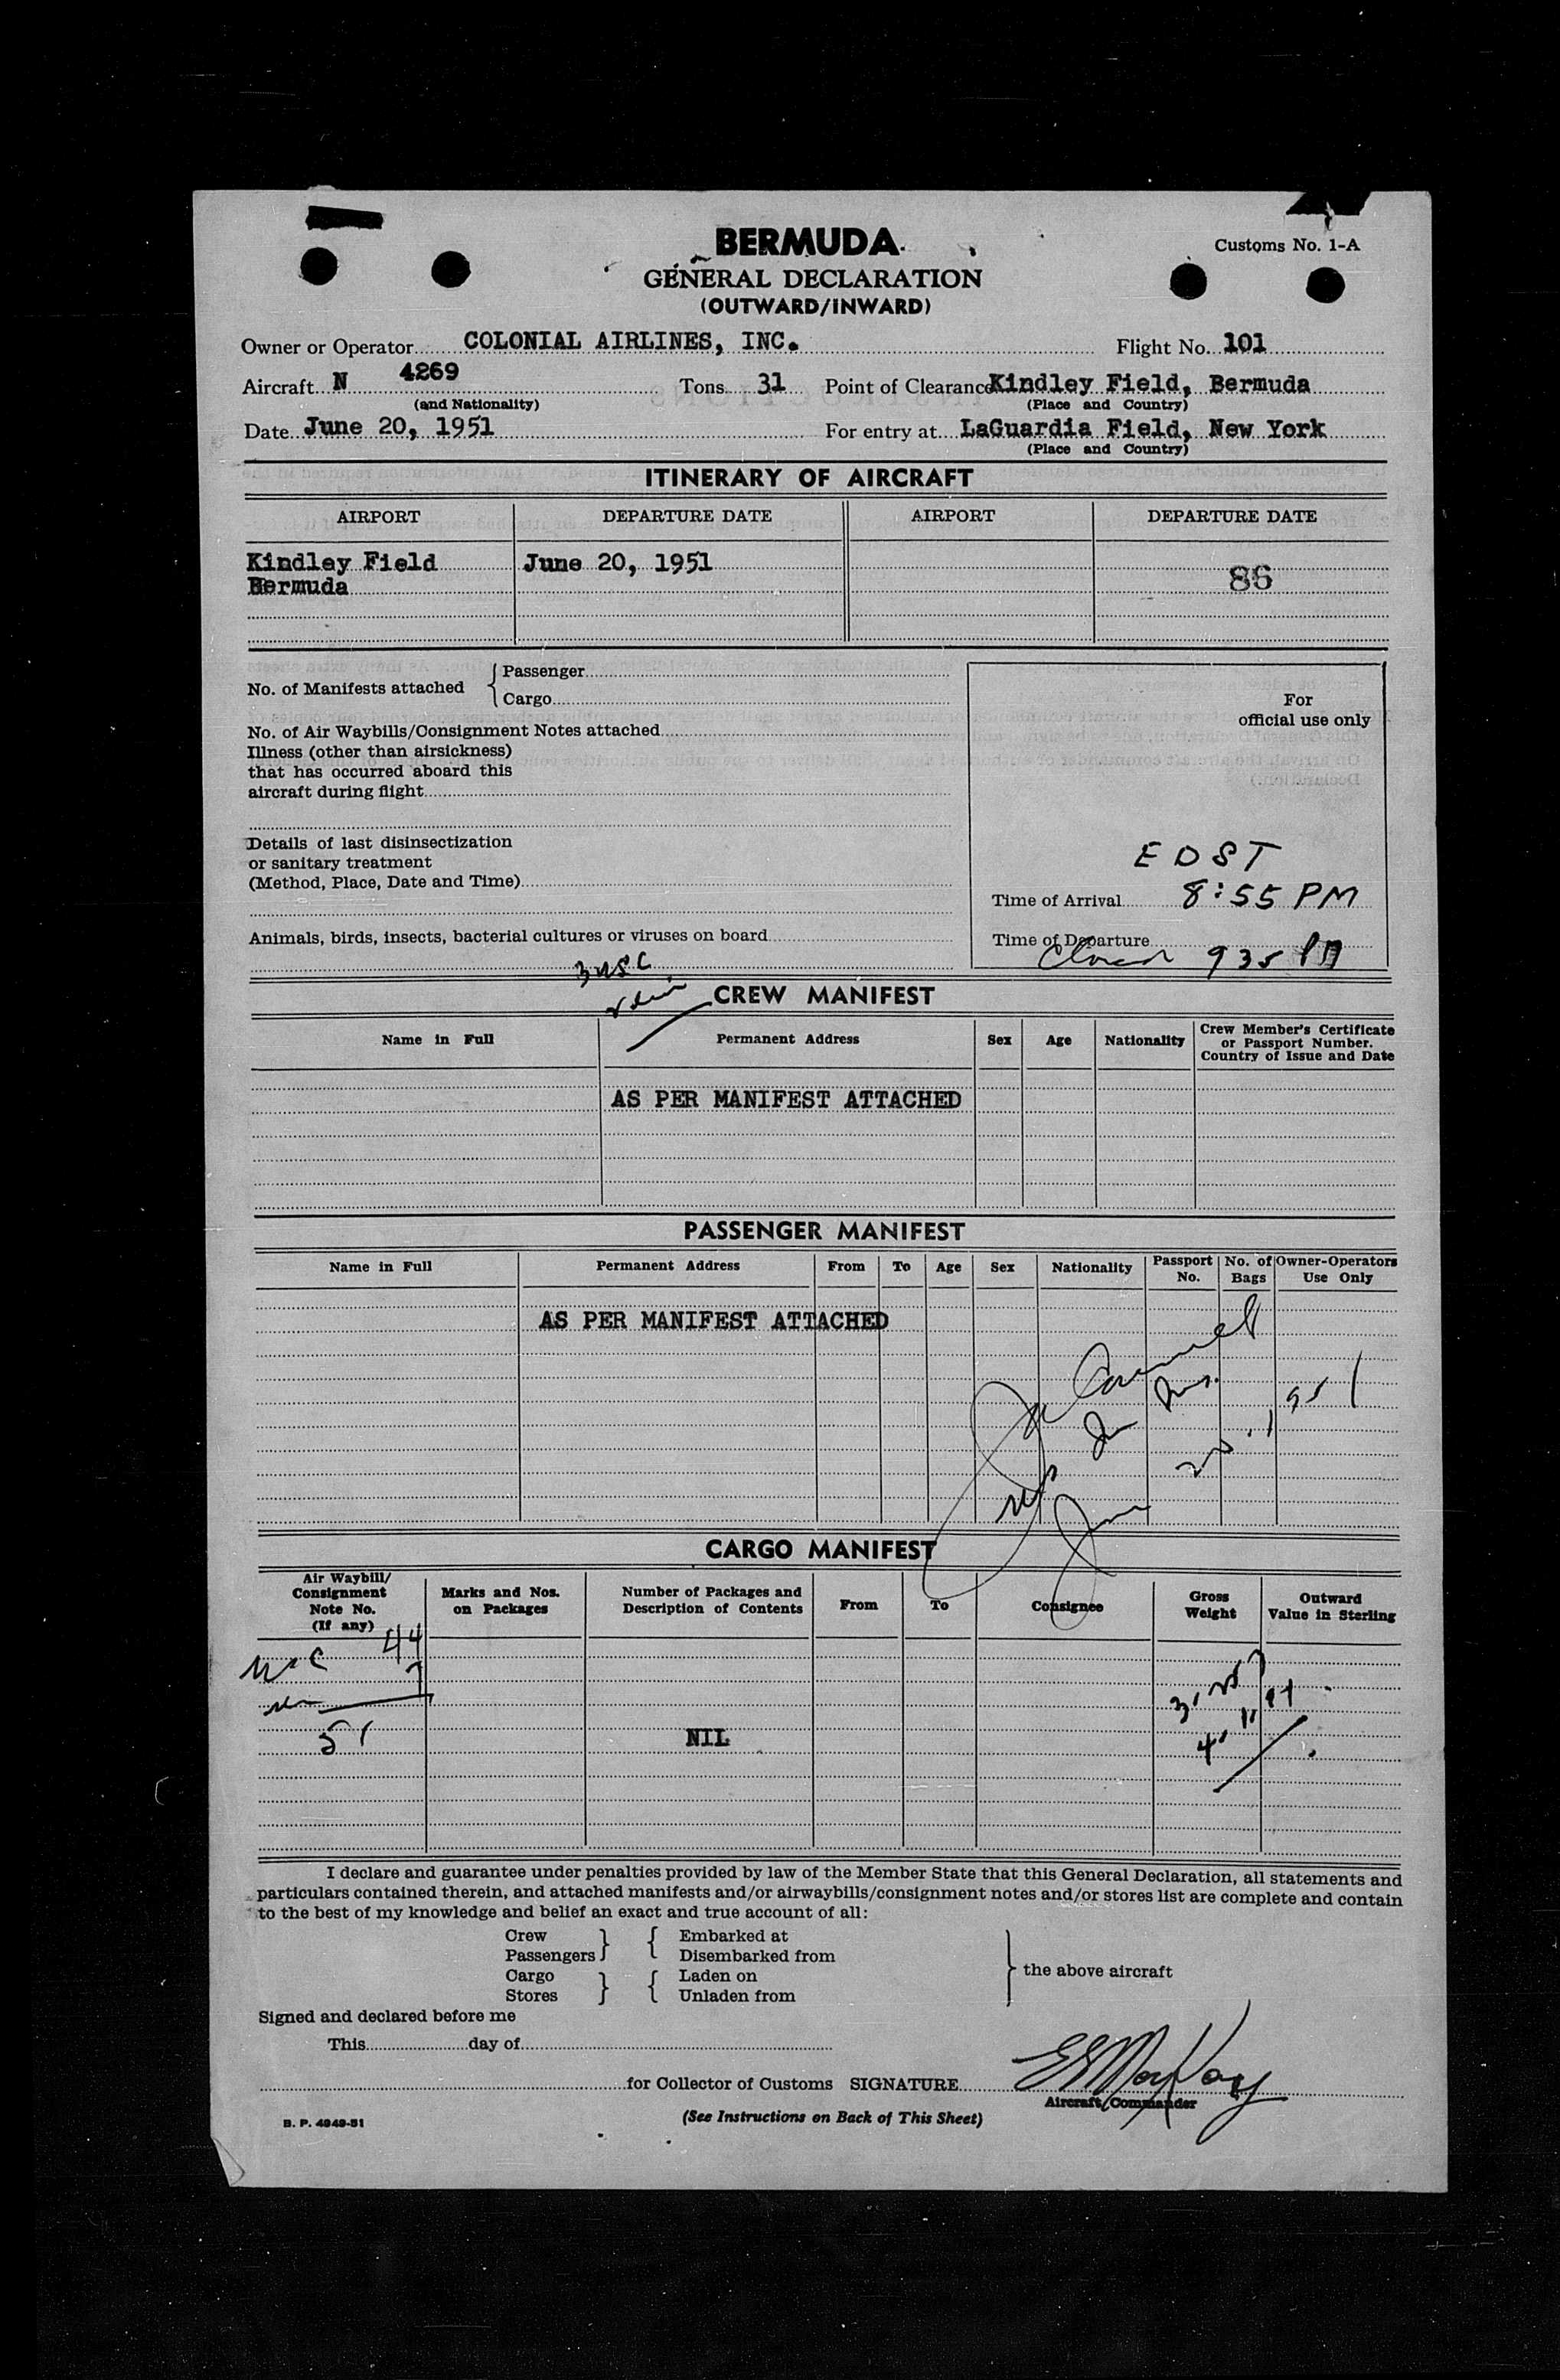 BERMUDA
Customs No. 1-A
GENERAL DECLARATION
(OUTWARD/INWARD)
Owner or Operator COLONIAL AIRLINES, INC. Flight No. 101
Aircraft N 4269 Tons 31 Point of Clearance Kindley Field, Bermuda
(and Nationality) (Place and Country)
Date June 20, 1951 For entry at LaGuardia Field, New York
(Place and Country)
ITINERARY OF AIRCRAFT
AIRPORT DEPARTURE DATE AIRPORT DEPARTURE DATE
Kindley Field June 20, 1951
Bermuda 86
No. of Manifests attached { Passenger
Cargo
No. of Air Waybills/Consignment Notes attached
Illness (other than airsickness)
that has occurred aboard this
aircraft during flight
Details of last disinsectization
or sanitary treatment
(Method, Place, Date and Time)
Animals, birds, insects, bacterial cultures or viruses on board
For
official use only
EDST
Time of Arrival 8:55 PM
Time of Departure
Closed 935 PM
CREW MANIFEST
Name in Full Permanent Address Sex Age Nationality Crew Member's Certificate
or Passport Number.
Country of Issue and Date
AS PER MANIFEST ATTACHED
PASSENGER MANIFEST
Name in Full Permanent Address From To Age Sex Nationality Passport No. No. of Bags Owner-Operators Use Only
AS PER MANIFEST ATTACHED
CARGO MANIFEST
Air Waybill/
Consignment
Note No.
(If any)
Marks and Nos.
on Packages
Number of Packages and
Description of Contents
From To Consignee
Gross
Weight
Outward
Value in Sterling
44
7
51
NIL
I declare and guarantee under penalties provided by law of the Member State that this General Declaration, all statements and
particulars contained therein, and attached manifests and/or airwaybills/consignment notes and/or stores list are complete and contain
to the best of my knowledge and belief an exact and true account of all:
Crew } { Embarked at
Passengers Disembarked from
Cargo } { Laden on
Stores Unladen from
} the above aircraft
Signed and declared before me
This day of
for Collector of Customs SIGNATURE
Aircraft Commander
B. P. 4949-51
(See Instructions on Back of This Sheet)